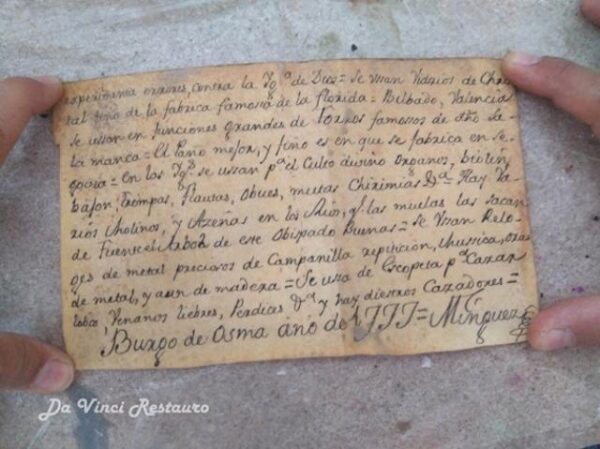 experimenta errores, contra la Ygª de Dios = Se usan Vidrios de Chris
tal fino de la fabrica famosa de la florida = Bilbado, Valencia
se ussan en funciones grandes de toros famosos de dho Sa-
la manca = El paño mejor, y fino es en que se fabrica en Se-
govia = en las Ygs se ussan pª el Culto divino organos, biolin
bajon, trompas, flautas, Obues, muitas Chirimias &ª = Hay Va
rios Molinos, y Azeñas en los Rios, y las muelas las sacan
de Fuentelarbol de este Obispado Buenas = Se Ussan Relo-
ges de metal preciosos de Campanilla repiticion, y mussica,
de metal, y aun de madera = Se usa de Escopeta pª Cazar
lobos, Venanos liebres, Perdias &ª y hay diestros Cazadores =
Burgo de Osma año de 1777 = Minguez
Da Vinci Restauro